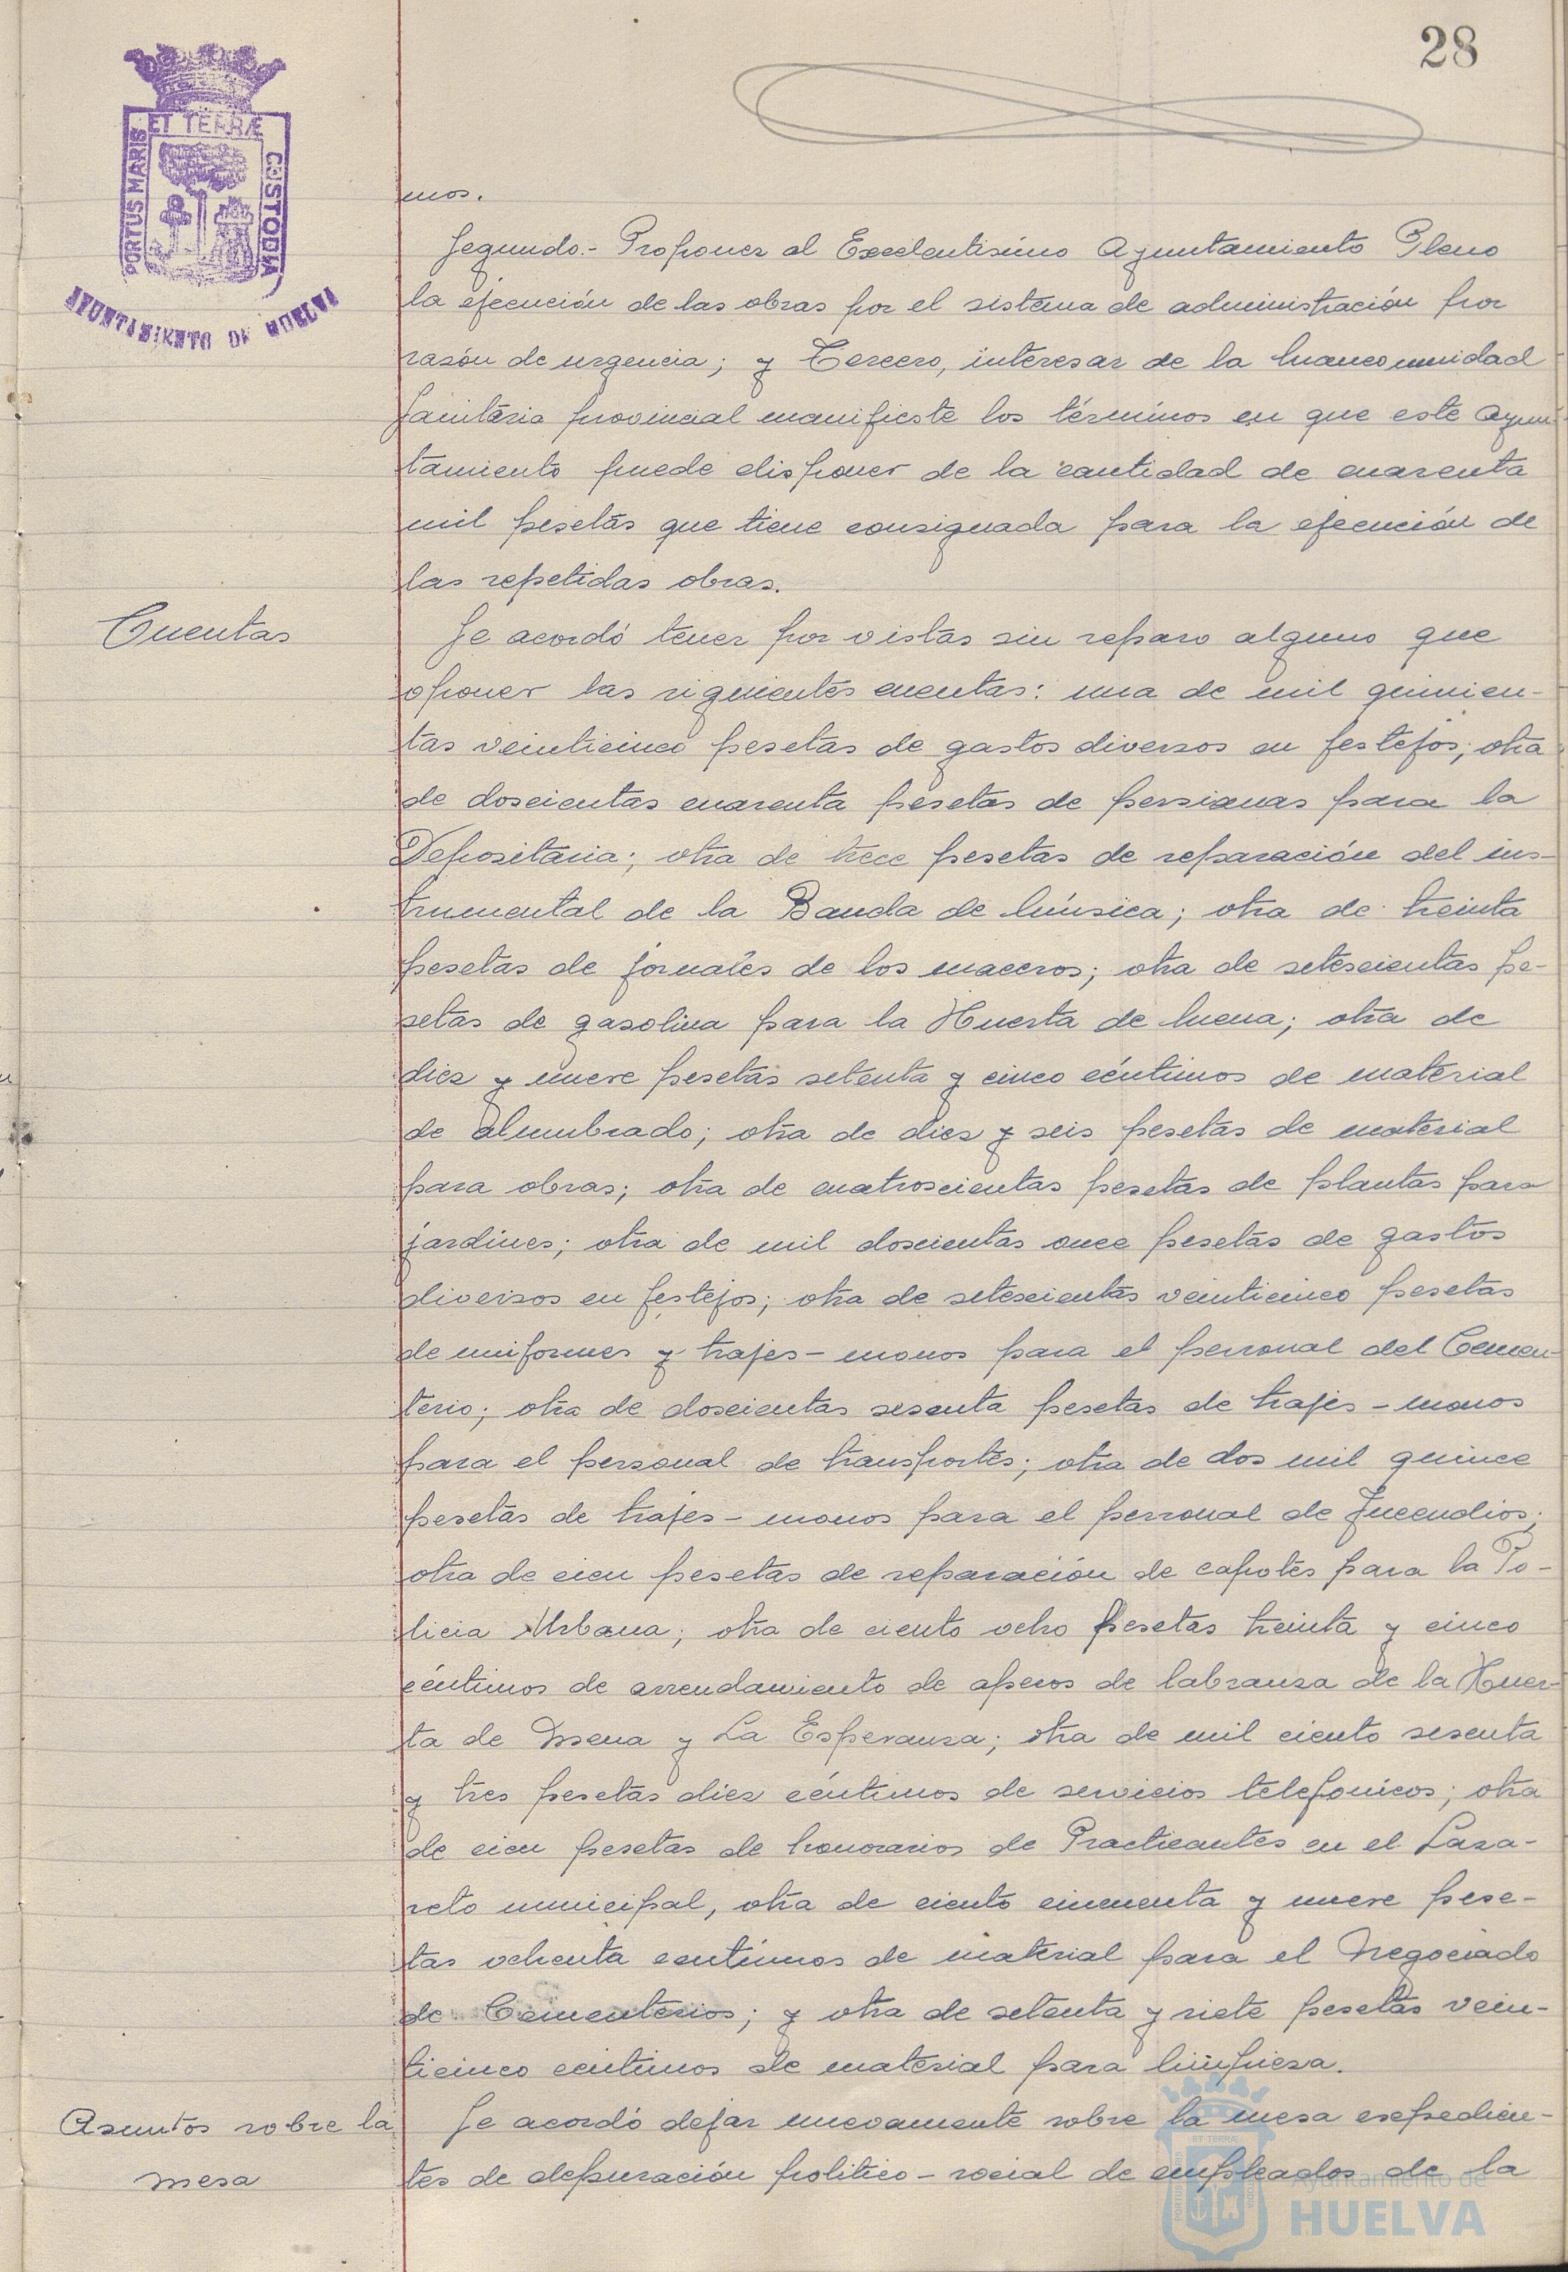 28
ET TERRÆ
PORTUS MARIS
CUSTODIA
AYUNTAMIENTO DE HUELVA
mos.
Segundo.- Proponer al Excelentisimo Ayuntamiento Pleno
la ejecución de las obras por el sistema de administración por
razón de urgencia; y Tercero, interesar de la Mancomunidad
Sanitaria provincial manifieste los términos en que este Ayun-
tamiento puede disponer de la cantidad de cuarenta
mil pesetas que tiene consignada para la ejecución de
las repetidas obras.
Cuentas
Se acordó tener por vistas sin reparo alguno que
oponer las siguientes cuentas: una de mil quinien-
tas veinticinco pesetas de gastos diversos en festejos; otra
de doscientas cuarenta pesetas de persianas para la
Depositaria; otra de trece pesetas de reparación del ins-
trumental de la Banda de Música; otra de treinta
pesetas de jornales de los maceros; otra de setescientas pe-
setas de gasolina para la Huerta de Mena; otra de
diez y nueve pesetas setenta y cinco céntimos de material
de alumbrado; otra de diez y seis pesetas de material
para obras; otra de cuatroscientas pesetas de plantas para
jardines; otra de mil doscientas once pesetas de gastos
diversos en festejos; otra de setescientas veinticinco pesetas
de uniformes y trajes-monos para el personal del Cemen-
terio; otra de doscientas sesenta pesetas de trajes-monos
para el personal de transportes; otra de dos mil quince
pesetas de trajes-monos para el personal de Incendios;
otra de cien pesetas de reparación de capotes para la Po-
licia Urbana; otra de ciento ocho pesetas treinta y cinco
céntimos de arrendamiento de aperos de labranza de la Huer-
ta de Mena y La Esperanza; otra de mil ciento sesenta
y tres pesetas diez céntimos de servicios telefonicos; otra
de cien pesetas de honorarios de Practicantes en el Laza-
reto municipal, otra de ciento cincuenta y nueve pese-
tas ochenta centimos de material para el Negociado
de Cementerios; y otra de setenta y siete pesetas vein-
ticinco centimos de material para limpieza.
Asuntos sobre la
mesa
Se acordó dejar nuevamente sobre la mesa expedien-
tes de depuración politico-social de empleados de la
Ayuntamiento de
HUELVA